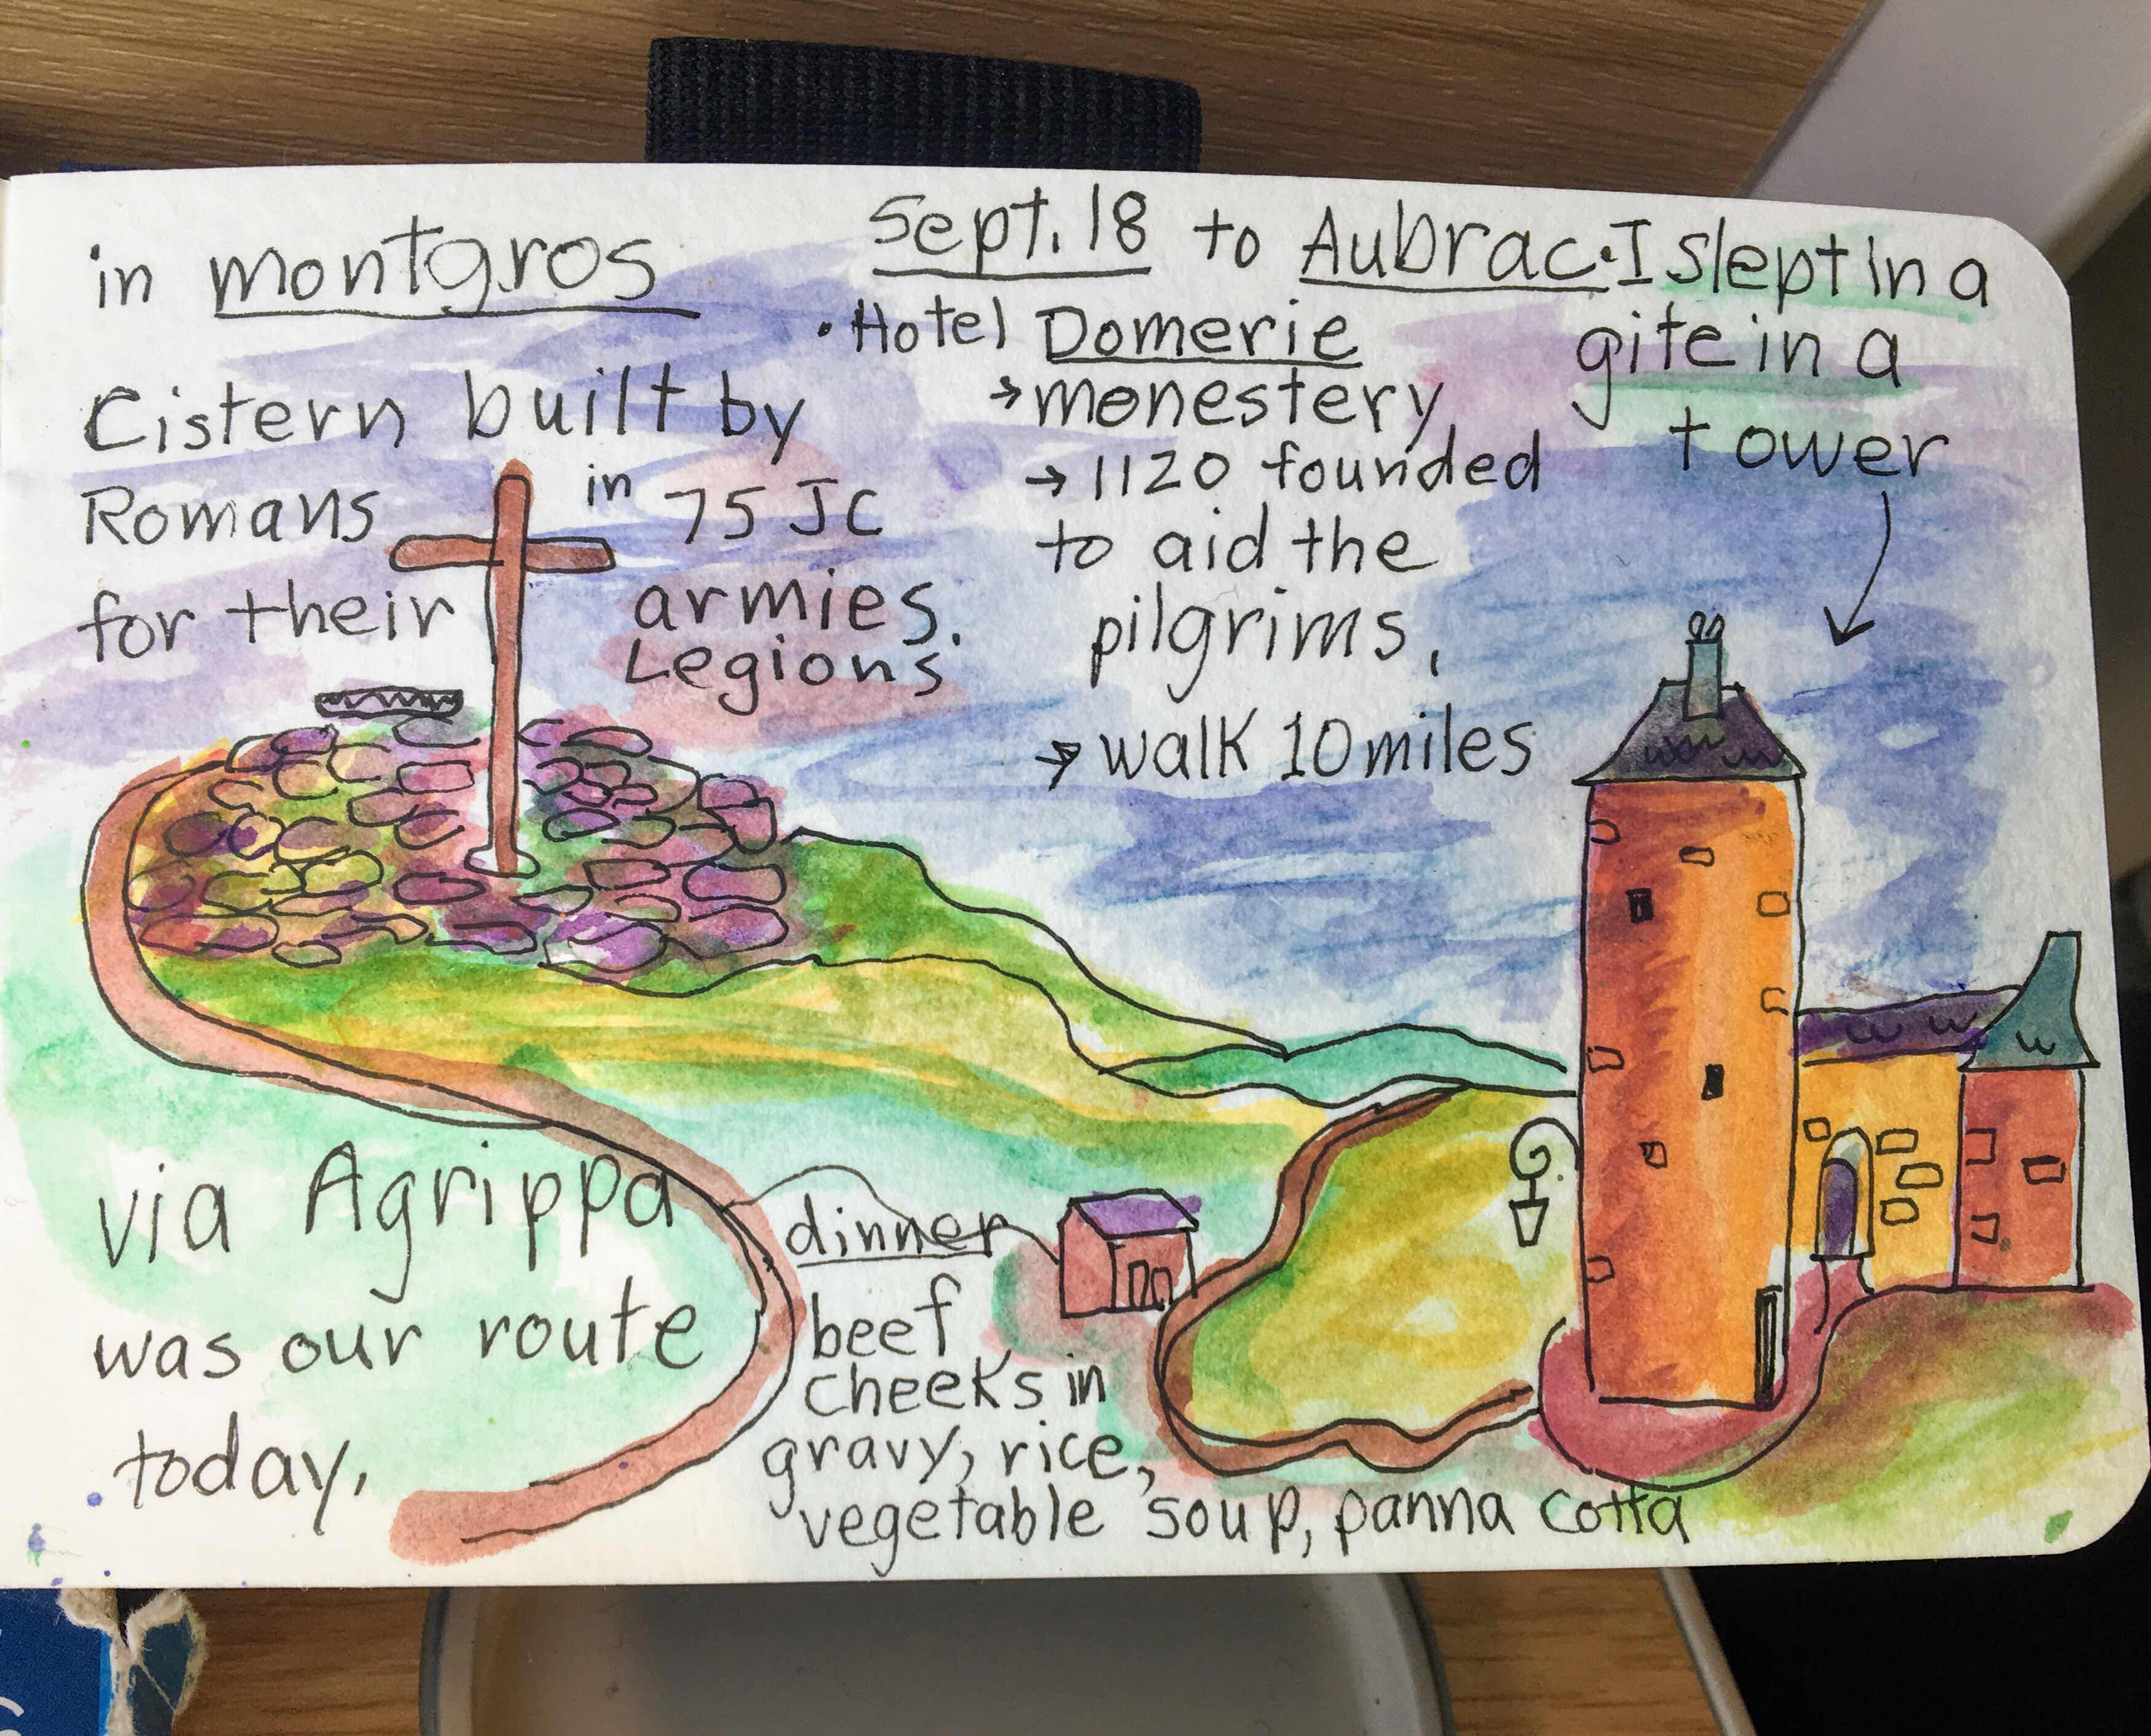 in montgros
Cistern built by
Romans in 75 JC
for their armies.
Legions
via Agrippa
was our route
today,
Sept. 18 to Aubrac. I slept in a
gite in a
tower
• Hotel Domerie
→ monestery
→ 1120 founded
to aid the
pilgrims,
→ walk 10 miles
dinner
beef
cheeks in
gravy, rice,
vegetable soup, panna cotta